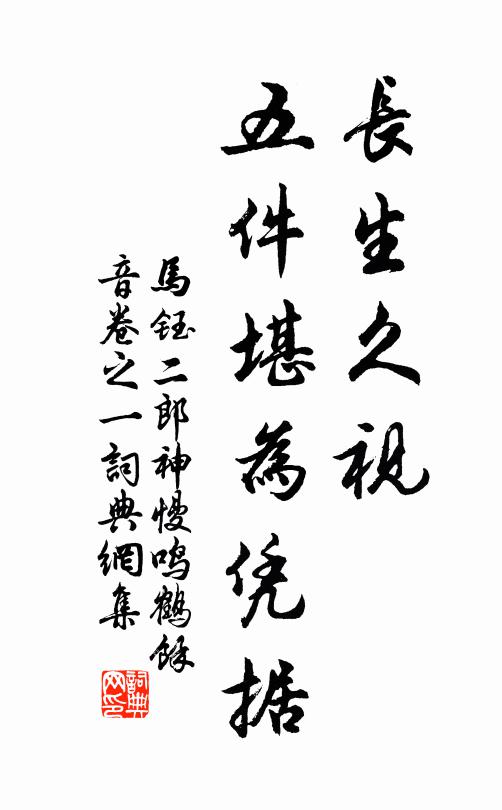 長生久視
五件堪為凭据
馬鈺二郎神慢鳴鶴餘
音卷之一詞典網集
詞典
网印